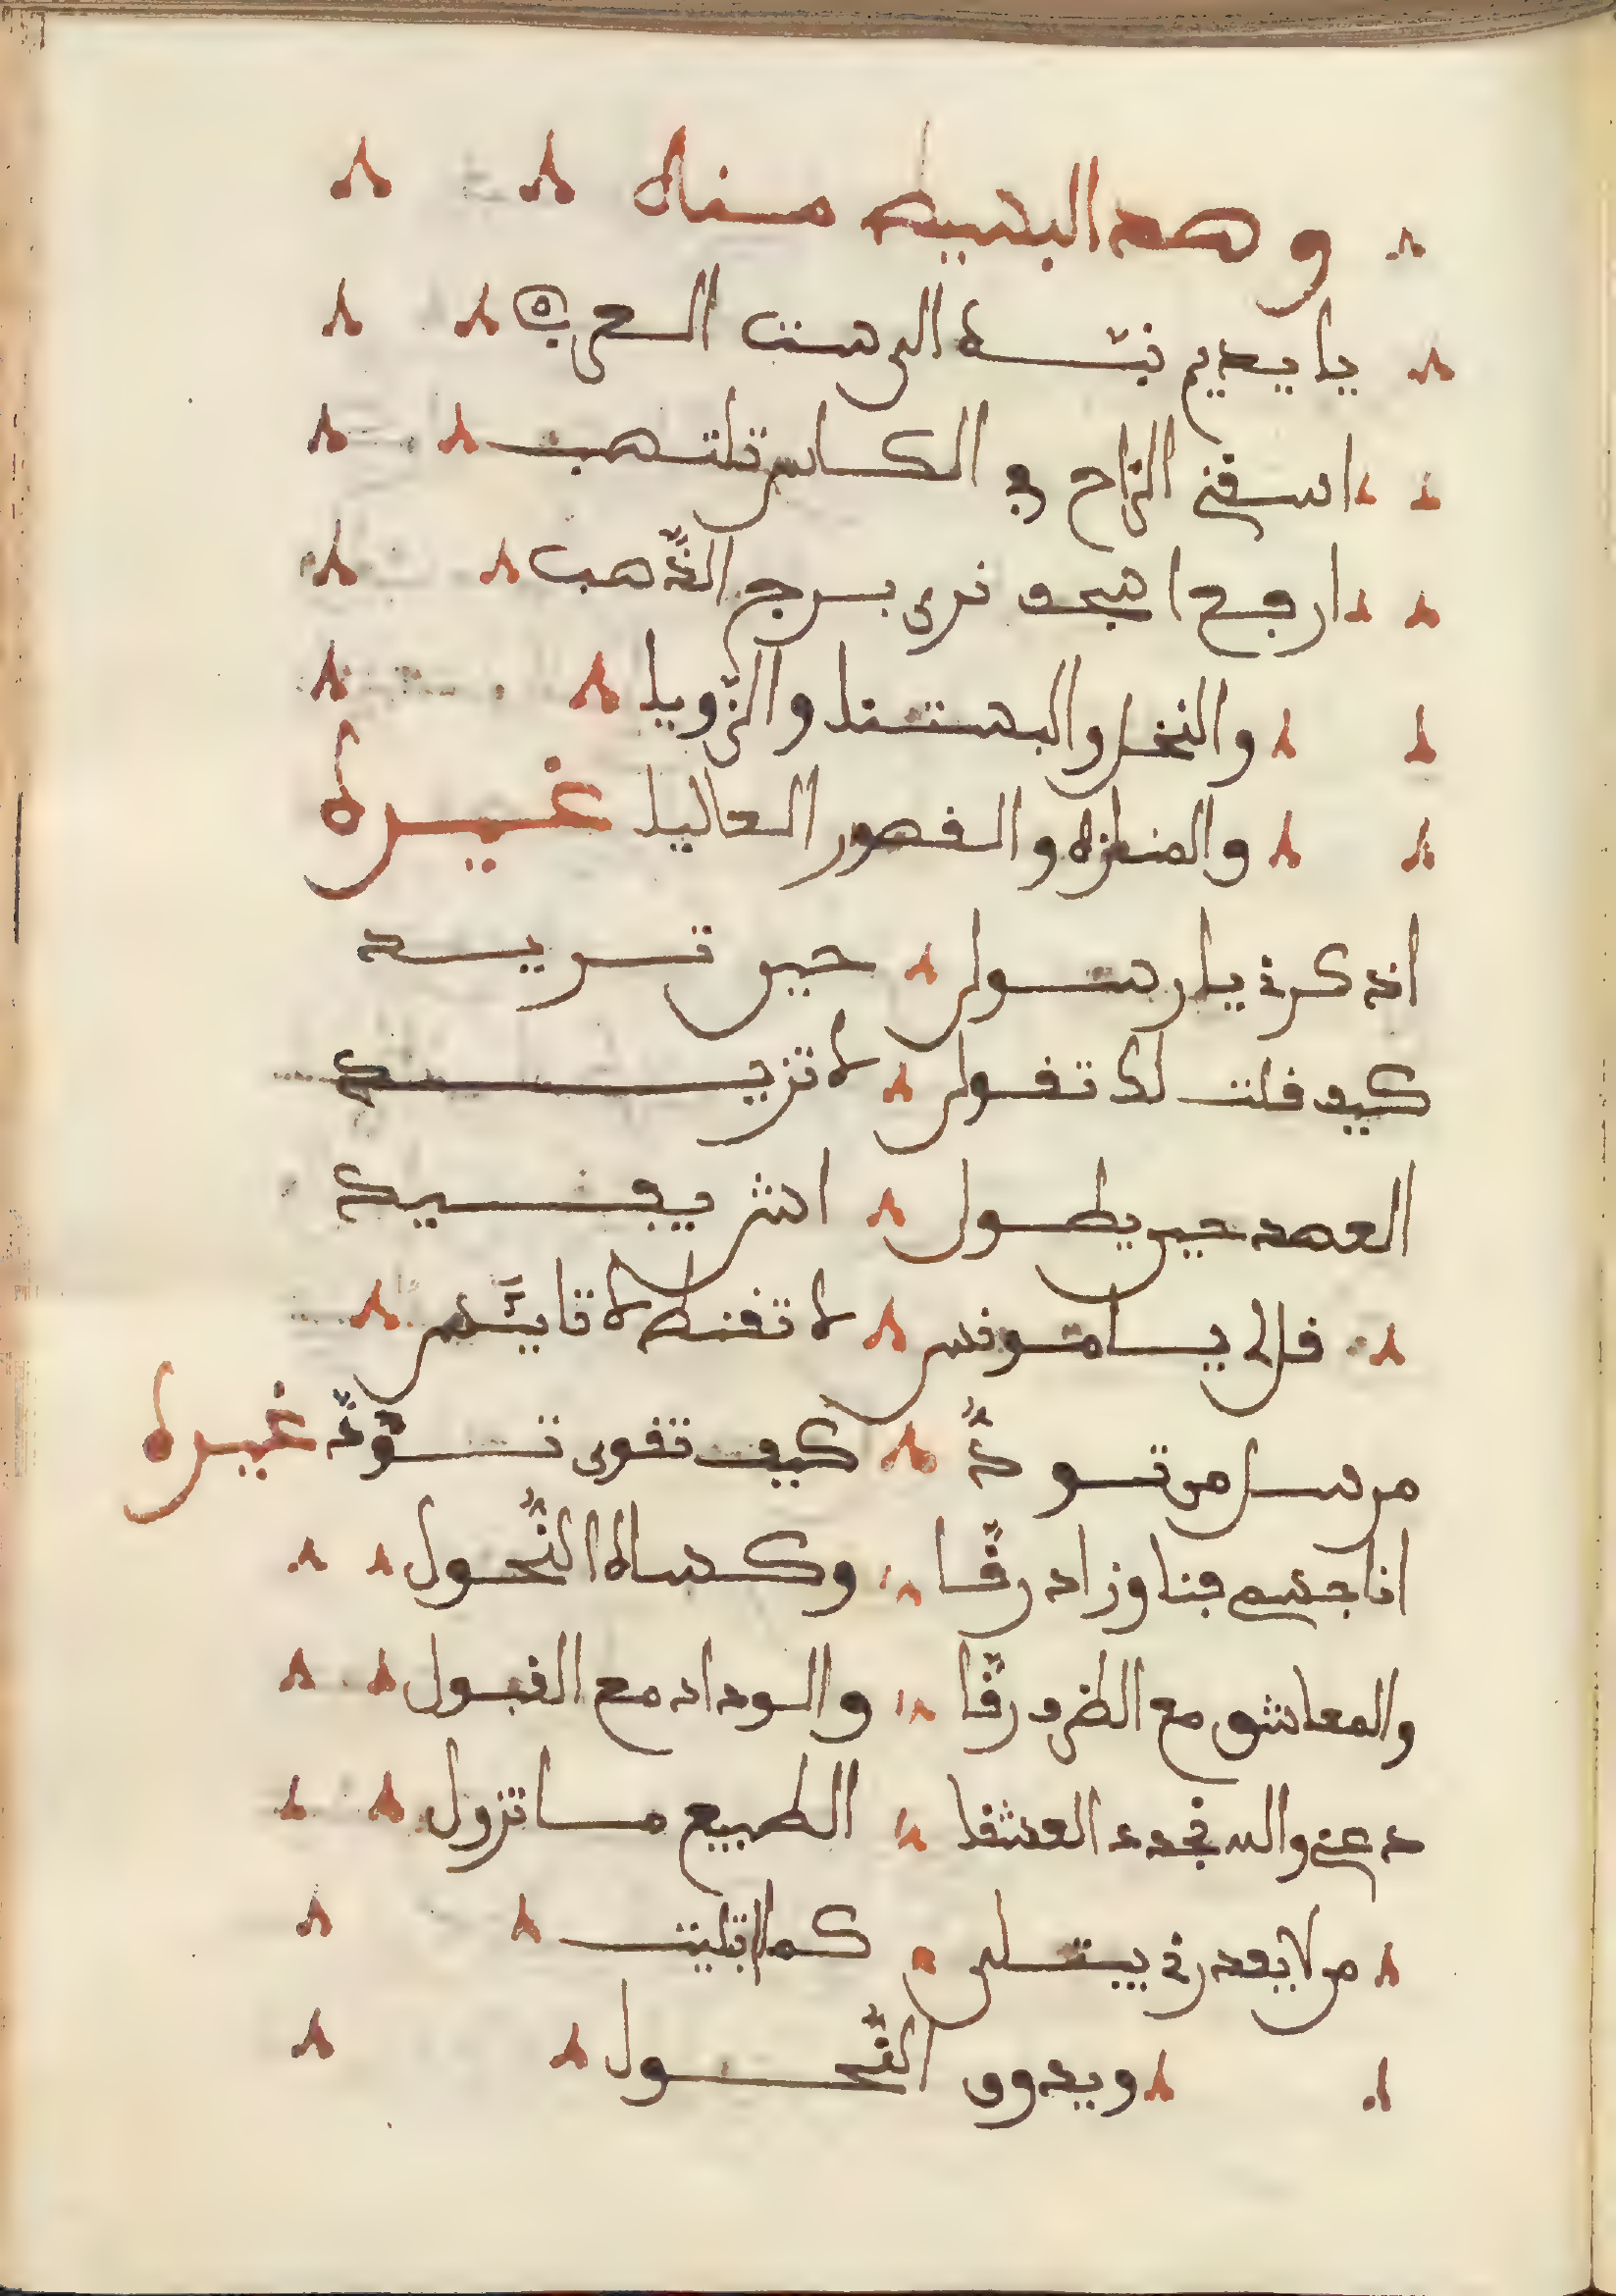 وهد البسيط مناه
يا يديم نبّه البر هست العرب
اسقني الرّاح في الكاس تلتهب
ارجع اهجو نرى برج الذّهب
والنخل والبستنا والزّويلا
والمنازه والقصور العاليا غيره
اذكرني يا رسولي حين تريد
كيف قلت لك تقول لا تزيد
العهد حين يطول اش يفيد
قال لي يا مونس لا تقنط لا تايّس
من هو توددّ كيف تقوى تودّ غيره
انا جسمي فنا وزاد رقّا وكساه النّحول
والمعاشق مع الظرف رقّا والوداد مع القبول
دعني والله نجدد العشقا الطبيع ما تزول
من لا يعدرني يبتلي كما ابتليت
ويدوق النّحول